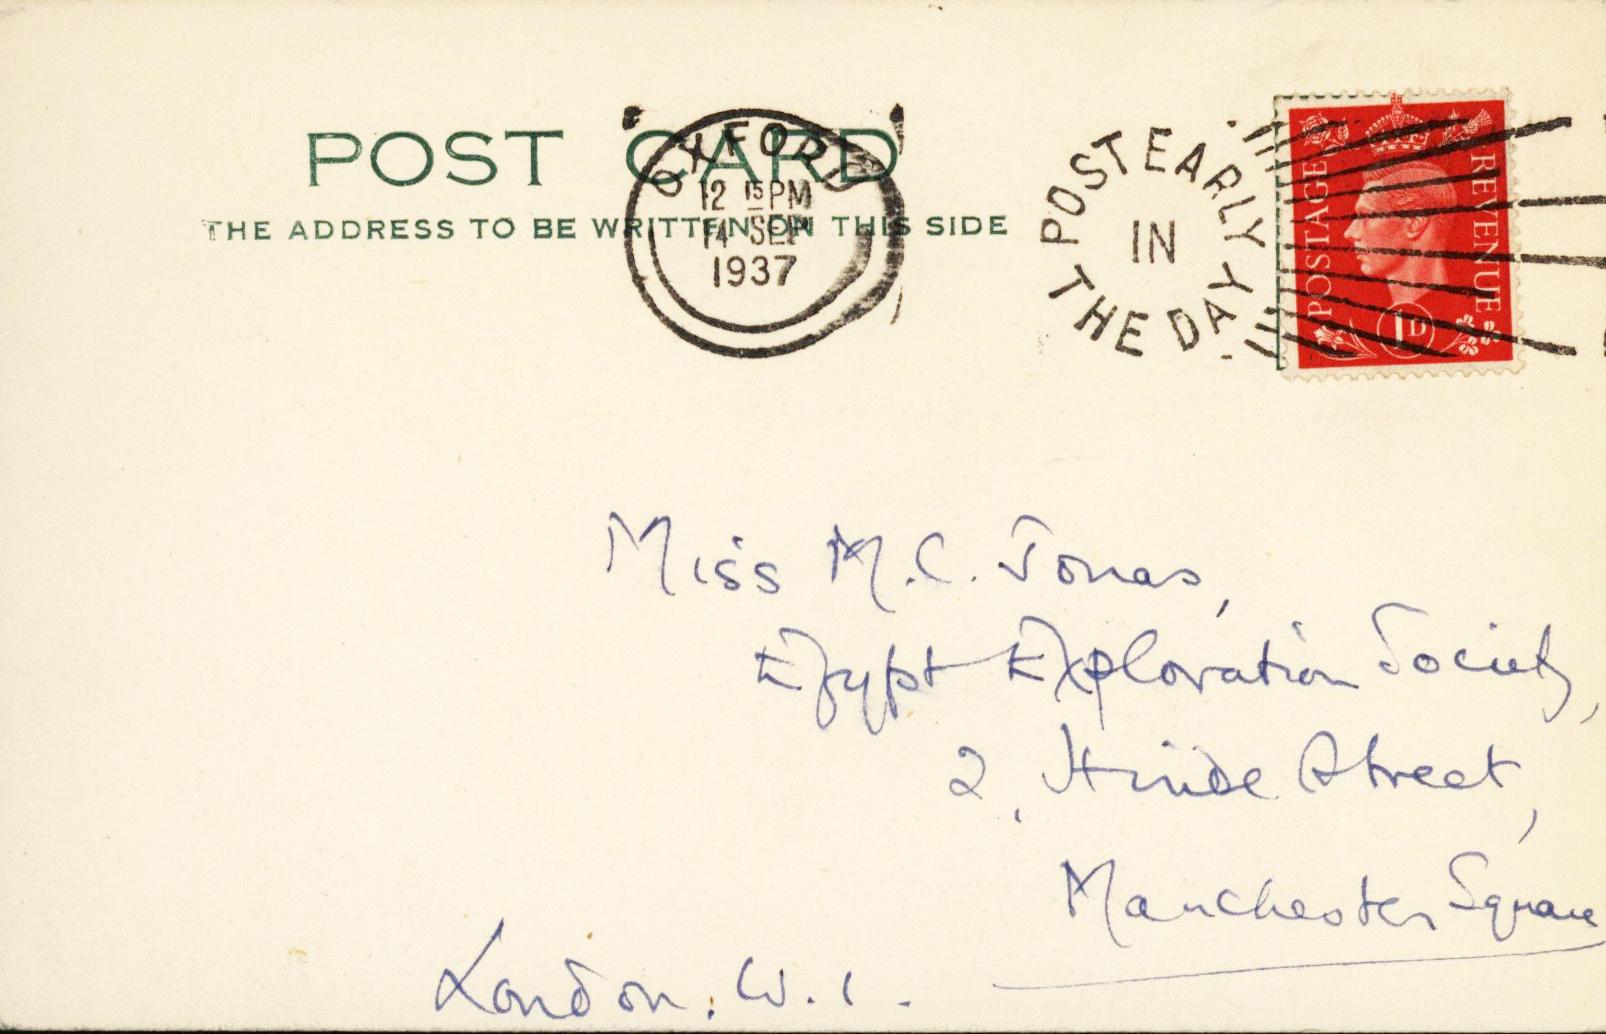 POST CARD
THE ADDRESS TO BE WRITTEN ON THIS SIDE
OXFORD
12 15 PM
14 SEP
1937
POST EARLY
IN
THE DAY
POSTAGE
REVENUE
1D
Miss M.C. Jonas,
Egypt Exploration Society,
2, Hinde Street,
Manchester Square
London, W.1.